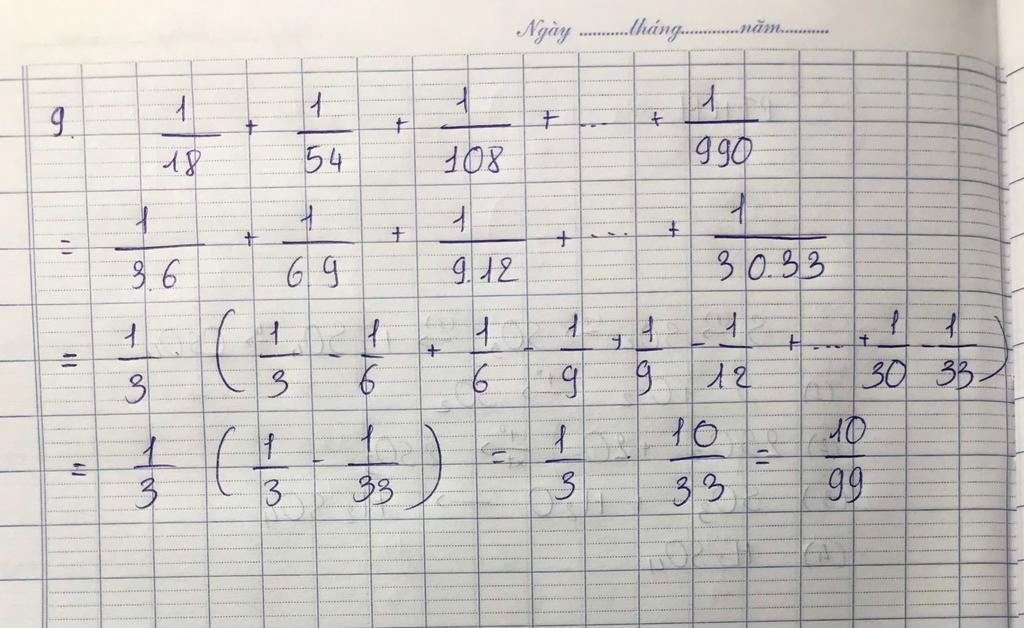 Ngày ...........tháng.............năm...........
9. 1/18 + 1/54 + 1/108 + ... + 1/990
= 1/3.6 + 1/6.9 + 1/9.12 + ... + 1/30.33
= 1/3 (1/3 - 1/6 + 1/6 - 1/9 + 1/9 - 1/12 + ... + 1/30 - 1/33)
= 1/3 (1/3 - 1/33) = 1/3 . 10/33 = 10/99